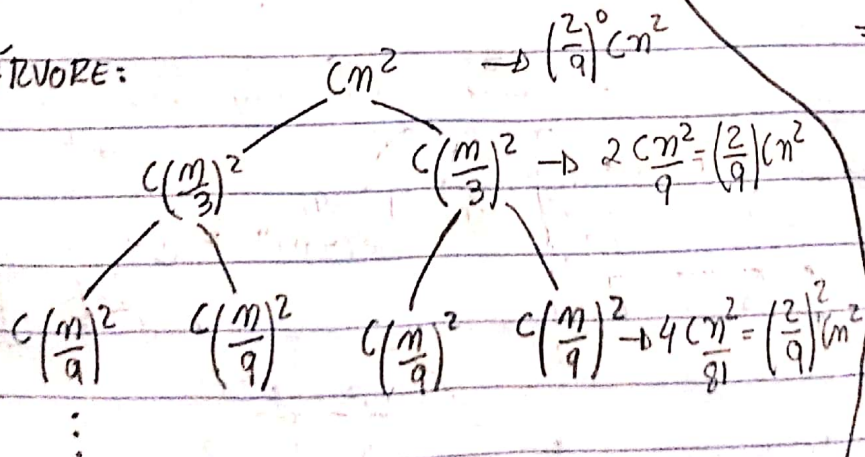 ÁRVORE: Cn² → (2/9)⁰ Cn²
C(n/3)² C(n/3)² → 2 Cn²/9 = (2/9) Cn²
C(n/9)² C(n/9)² C(n/9)² C(n/9)² → 4 Cn²/81 = (2/9)² Cn²
⋮